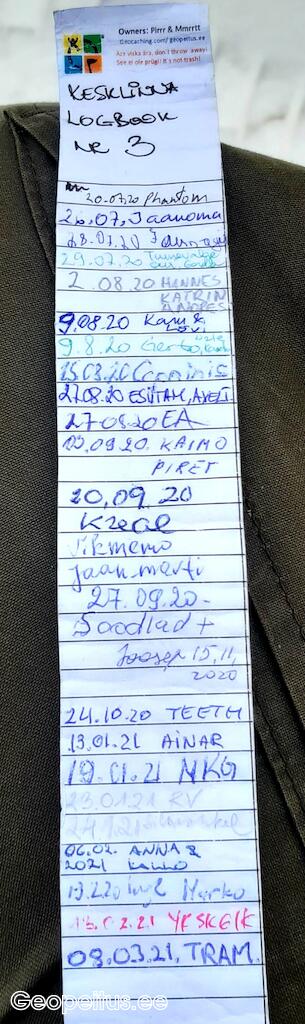 Owners: Pirrr & Mmrrtt
Geocaching.com/ geopeitus.ee
Ära viska ära, don't throw away!
See ei ole prügi! It's not trash!
KESKLINNA
LOGBOOK
NR 3
20.07.20 Phantom
26.07, Jaanoma
28.07.20
29.07.20
2.08.20 HANNES
KATRIN
9.08.20 Karu &
Lõvi
9.8.20 Gerto,
27.08.20 ESUTAM, AVELI
27.08.20 EA
09.20. KAIMO
PIRET
20.09.20
Kzeal
Vikmemo
Jaan-marti
27.09.20-
Soodlad +
Joosep 15.11,
2020
24.10.20 TEETH
13.01.21 AINAR
19.01.21 MKG
23.01.21 RV
24.1.21
06.02. ANNA &
2021
Marko
13.02.21
08.03.21, TRAM
Geopeitus.ee